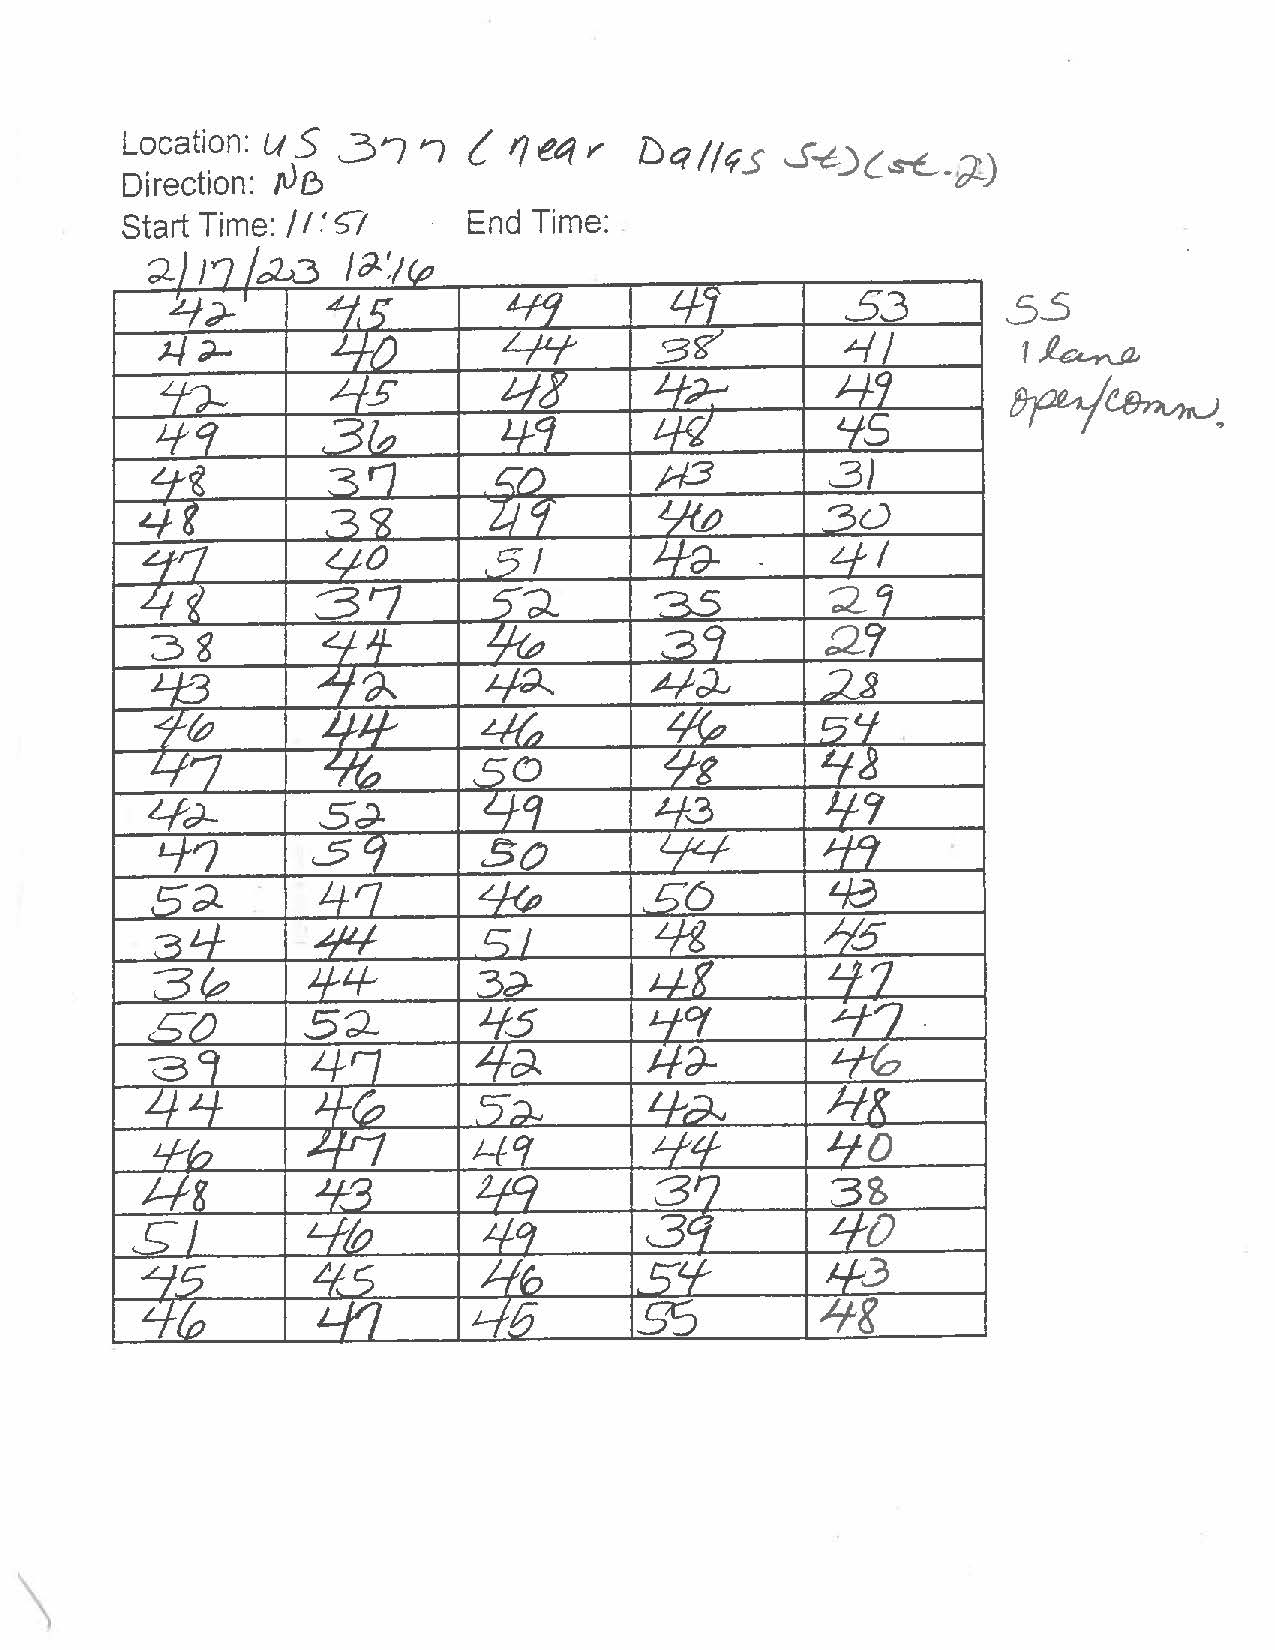 Location: US 377 (near Dallas St)(st.2)
Direction: NB
Start Time: 11:51 End Time:
2/17/23 12:16
42 45 49 49 53 SS
42 40 44 38 41 1 lane
42 45 48 42 49 open/comm.
49 36 49 48 45
48 37 50 43 31
48 38 49 46 30
47 40 51 42 41
48 37 52 35 29
38 44 46 39 29
43 42 42 42 28
46 44 46 46 54
47 46 50 48 48
42 52 49 43 49
47 59 50 44 49
52 47 46 50 43
34 44 51 48 45
36 44 32 48 47
50 52 45 49 47
39 47 42 42 46
44 46 52 42 48
46 47 49 44 40
48 43 49 37 38
51 46 49 39 40
45 45 46 54 43
46 47 45 55 48